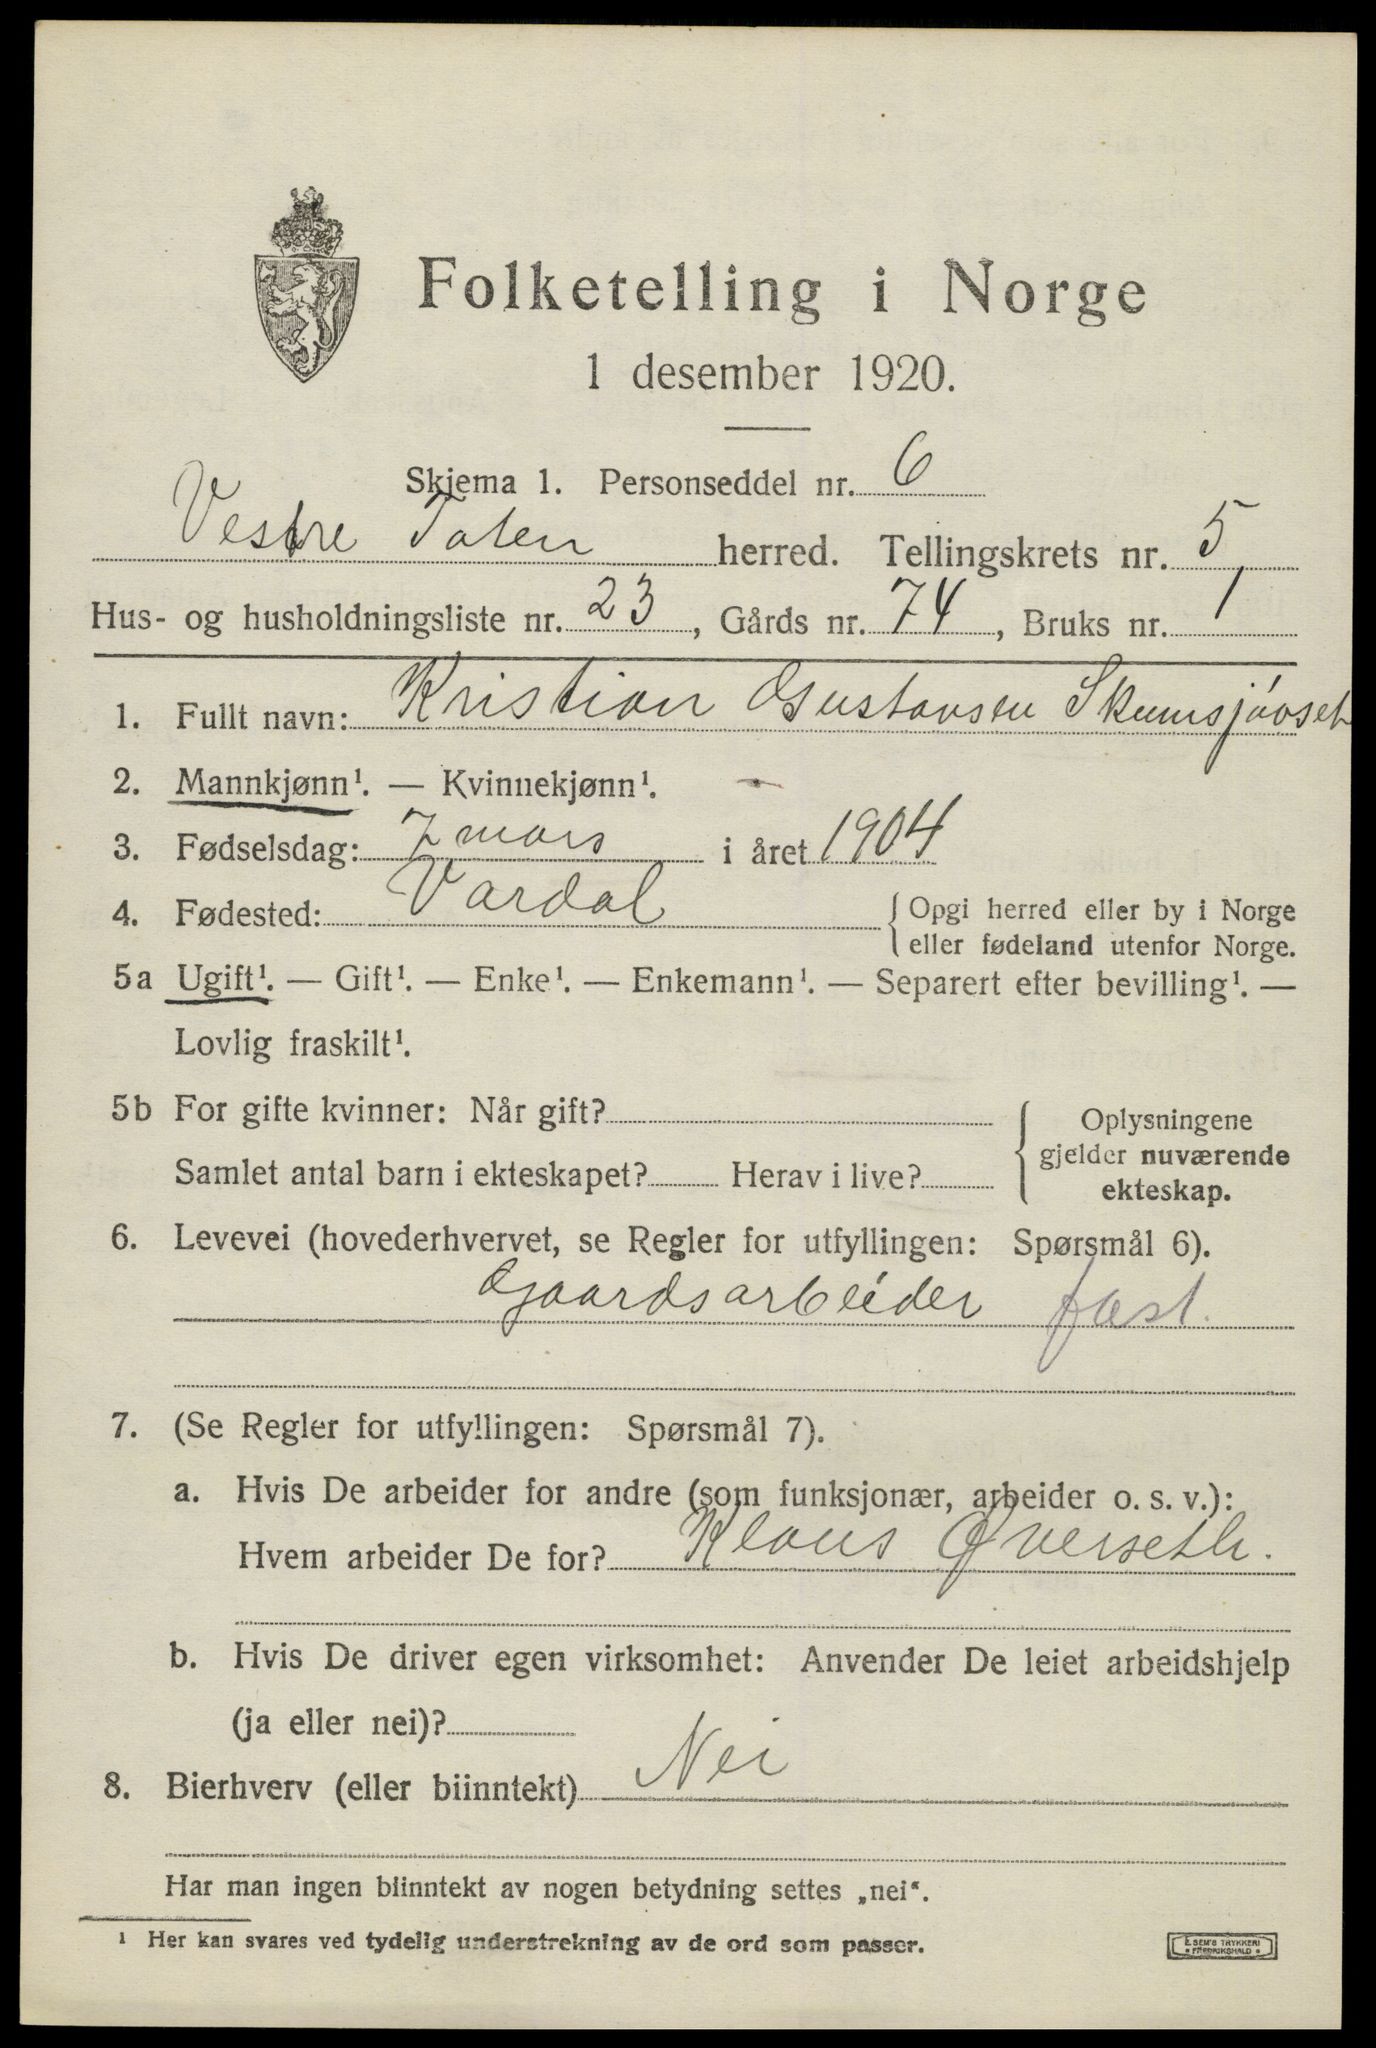 Folketelling i Norge
1 desember 1920.
Skjema 1. Personseddel nr. 6
Vestre Toten herred. Tellingskrets nr. 5
Hus- og husholdningsliste nr. 23, Gårds nr. 74, Bruks nr. 1
1. Fullt navn: Kristian Gustavsen Skumsjövset
2. Mannkjønn¹. — Kvinnekjønn¹.
3. Fødselsdag: 7 mars i året 1904
4. Fødested: Vardal { Opgi herred eller by i Norge
eller fødeland utenfor Norge.
5a Ugift¹. — Gift¹. — Enke¹. — Enkemann¹. — Separert efter bevilling¹. —
Lovlig fraskilt¹.
5b For gifte kvinner: Når gift? { Oplysningene
gjelder nuværende
ekteskap.
Samlet antal barn i ekteskapet? Herav i live?
6. Levevei (hovederhvervet, se Regler for utfyllingen: Spørsmål 6).
Gaardsarbeider fast.
7. (Se Regler for utfyllingen: Spørsmål 7).
a. Hvis De arbeider for andre (som funksjonær, arbeider o. s. v.):
Hvem arbeider De for? Klaus Øverseth.
b. Hvis De driver egen virksomhet: Anvender De leiet arbeidshjelp
(ja eller nei)?
8. Bierhverv (eller biinntekt) Nei
Har man ingen biinntekt av nogen betydning settes „nei“.
¹ Her kan svares ved tydelig understrekning av de ord som passer.
E. SEM'S TRYKKERI
FREDRIKSHALD